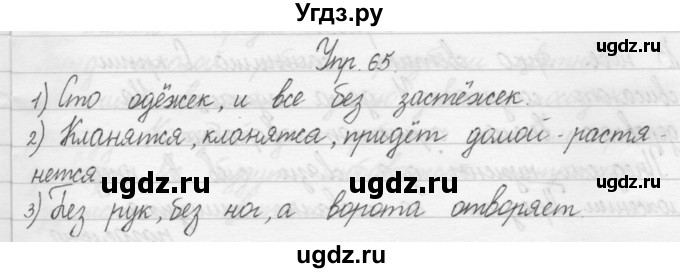 Угдз.ру
Упр. 65.
1) Сто одёжек, и все без застёжек.
2) Кланятся, кланятся, придёт домой - растя-
нется
ugdz.ru ugdz.ru ugdz.ru
3) Без рук, без ног, а ворота отворяет.
ugdz.ru ugdz.ru